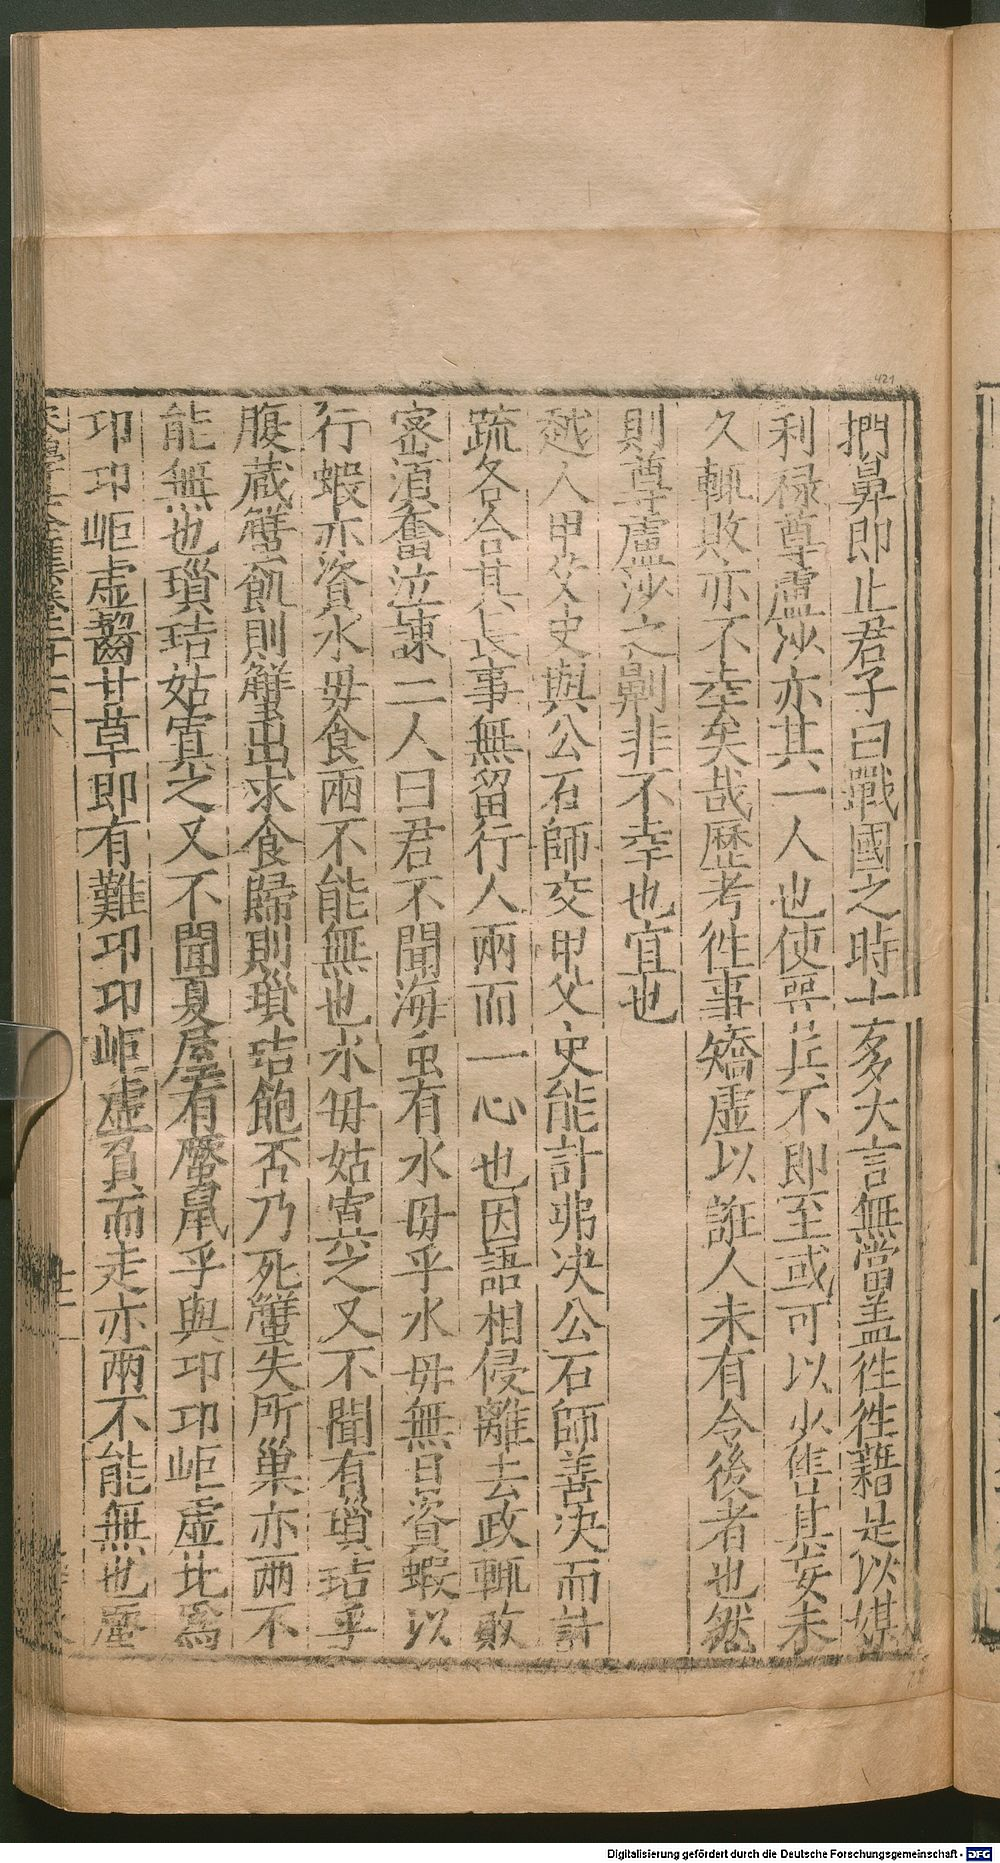 捫鼻即止君子曰戰國之時士多大言無當盖徃徃藉是以媒
利禄尊盧沙亦其一人也使晋兵不即至或可以少售其妄未
久輒敗亦不幸矣哉歷考徃事矯虛以誑人未有令後者也然
則尊盧沙之劓非不幸也宜也
越人甲父史與公石師交甲父史能計弗决公石師善决而計
疏各合其長事無留行人兩而一心也因語相侵離去政輒敗
宻湏奮泣諌二人曰君不聞海虫有水毋乎水毋無目資蝦以
行蝦亦資水毋食兩不能無也水毋姑寘之又不聞有瑣蛣乎
腹蔵蟹飢則蟹出求食歸則瑣蛣飽否乃死蟹失所巢亦兩不
能無也瑣蛣姑寘之又不聞夏屋有蟨鼠乎與邛邛岠虛比爲
邛邛岠虛齧甘草即有難邛邛岠虛負而走亦兩不能無也蟨
宋學士全集卷之二十八
421
Digitalisierung gefördert durch die Deutsche Forschungsgemeinschaft - DFG